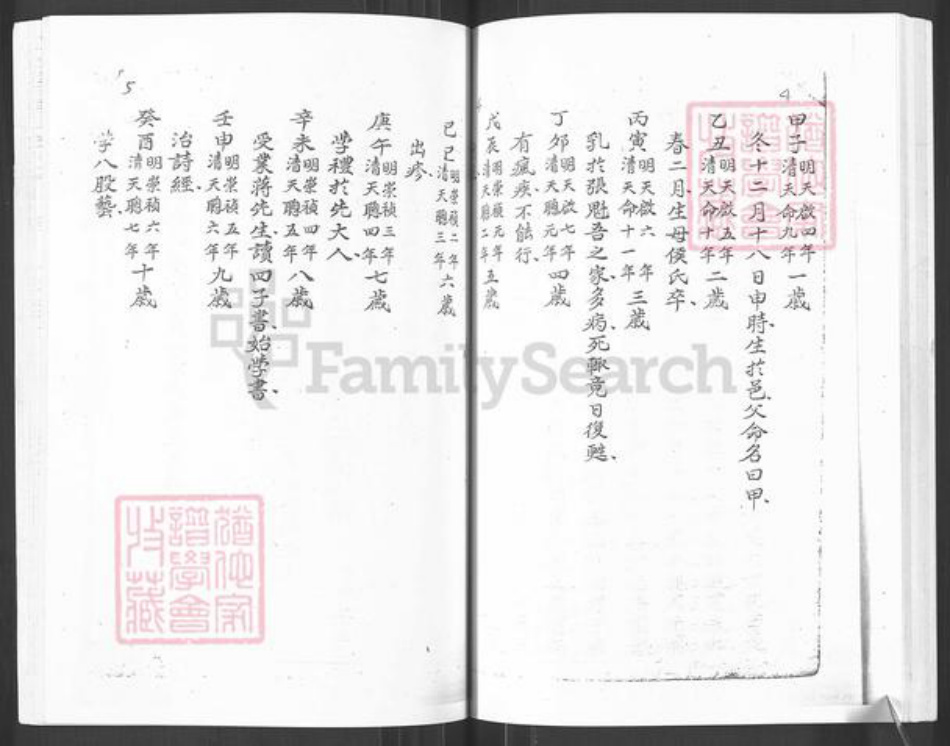 4
甲子 明天啟四年 清天命九年 一歲
冬十二月十八日申時生於邑、父命名曰甲、
乙丑 明天啟五年 清天命十年 二歲
春二月、生母侯氏卒、
丙寅 明天啟六年 清天命十一年 三歲
乳於張魁吾之家、多病、死輒竟日復甦、
丁卯 明天啟七年 清天聰元年 四歲
有瘋疾不能行、
戊辰 明崇禎元年 清天聰二年 五歲
5
己巳 明崇禎二年 清天聰三年 六歲
出疹、
庚午 明崇禎三年 清天聰四年 七歲
學禮於先大人、
辛未 明崇禎四年 清天聰五年 八歲
受業蔣先生、讀四子書、始學書、
壬申 明崇禎五年 清天聰六年 九歲
治詩經、
癸酉 明崇禎六年 清天聰七年 十歲
學八股藝、
猶他家
譜學會
收藏
FamilySearch